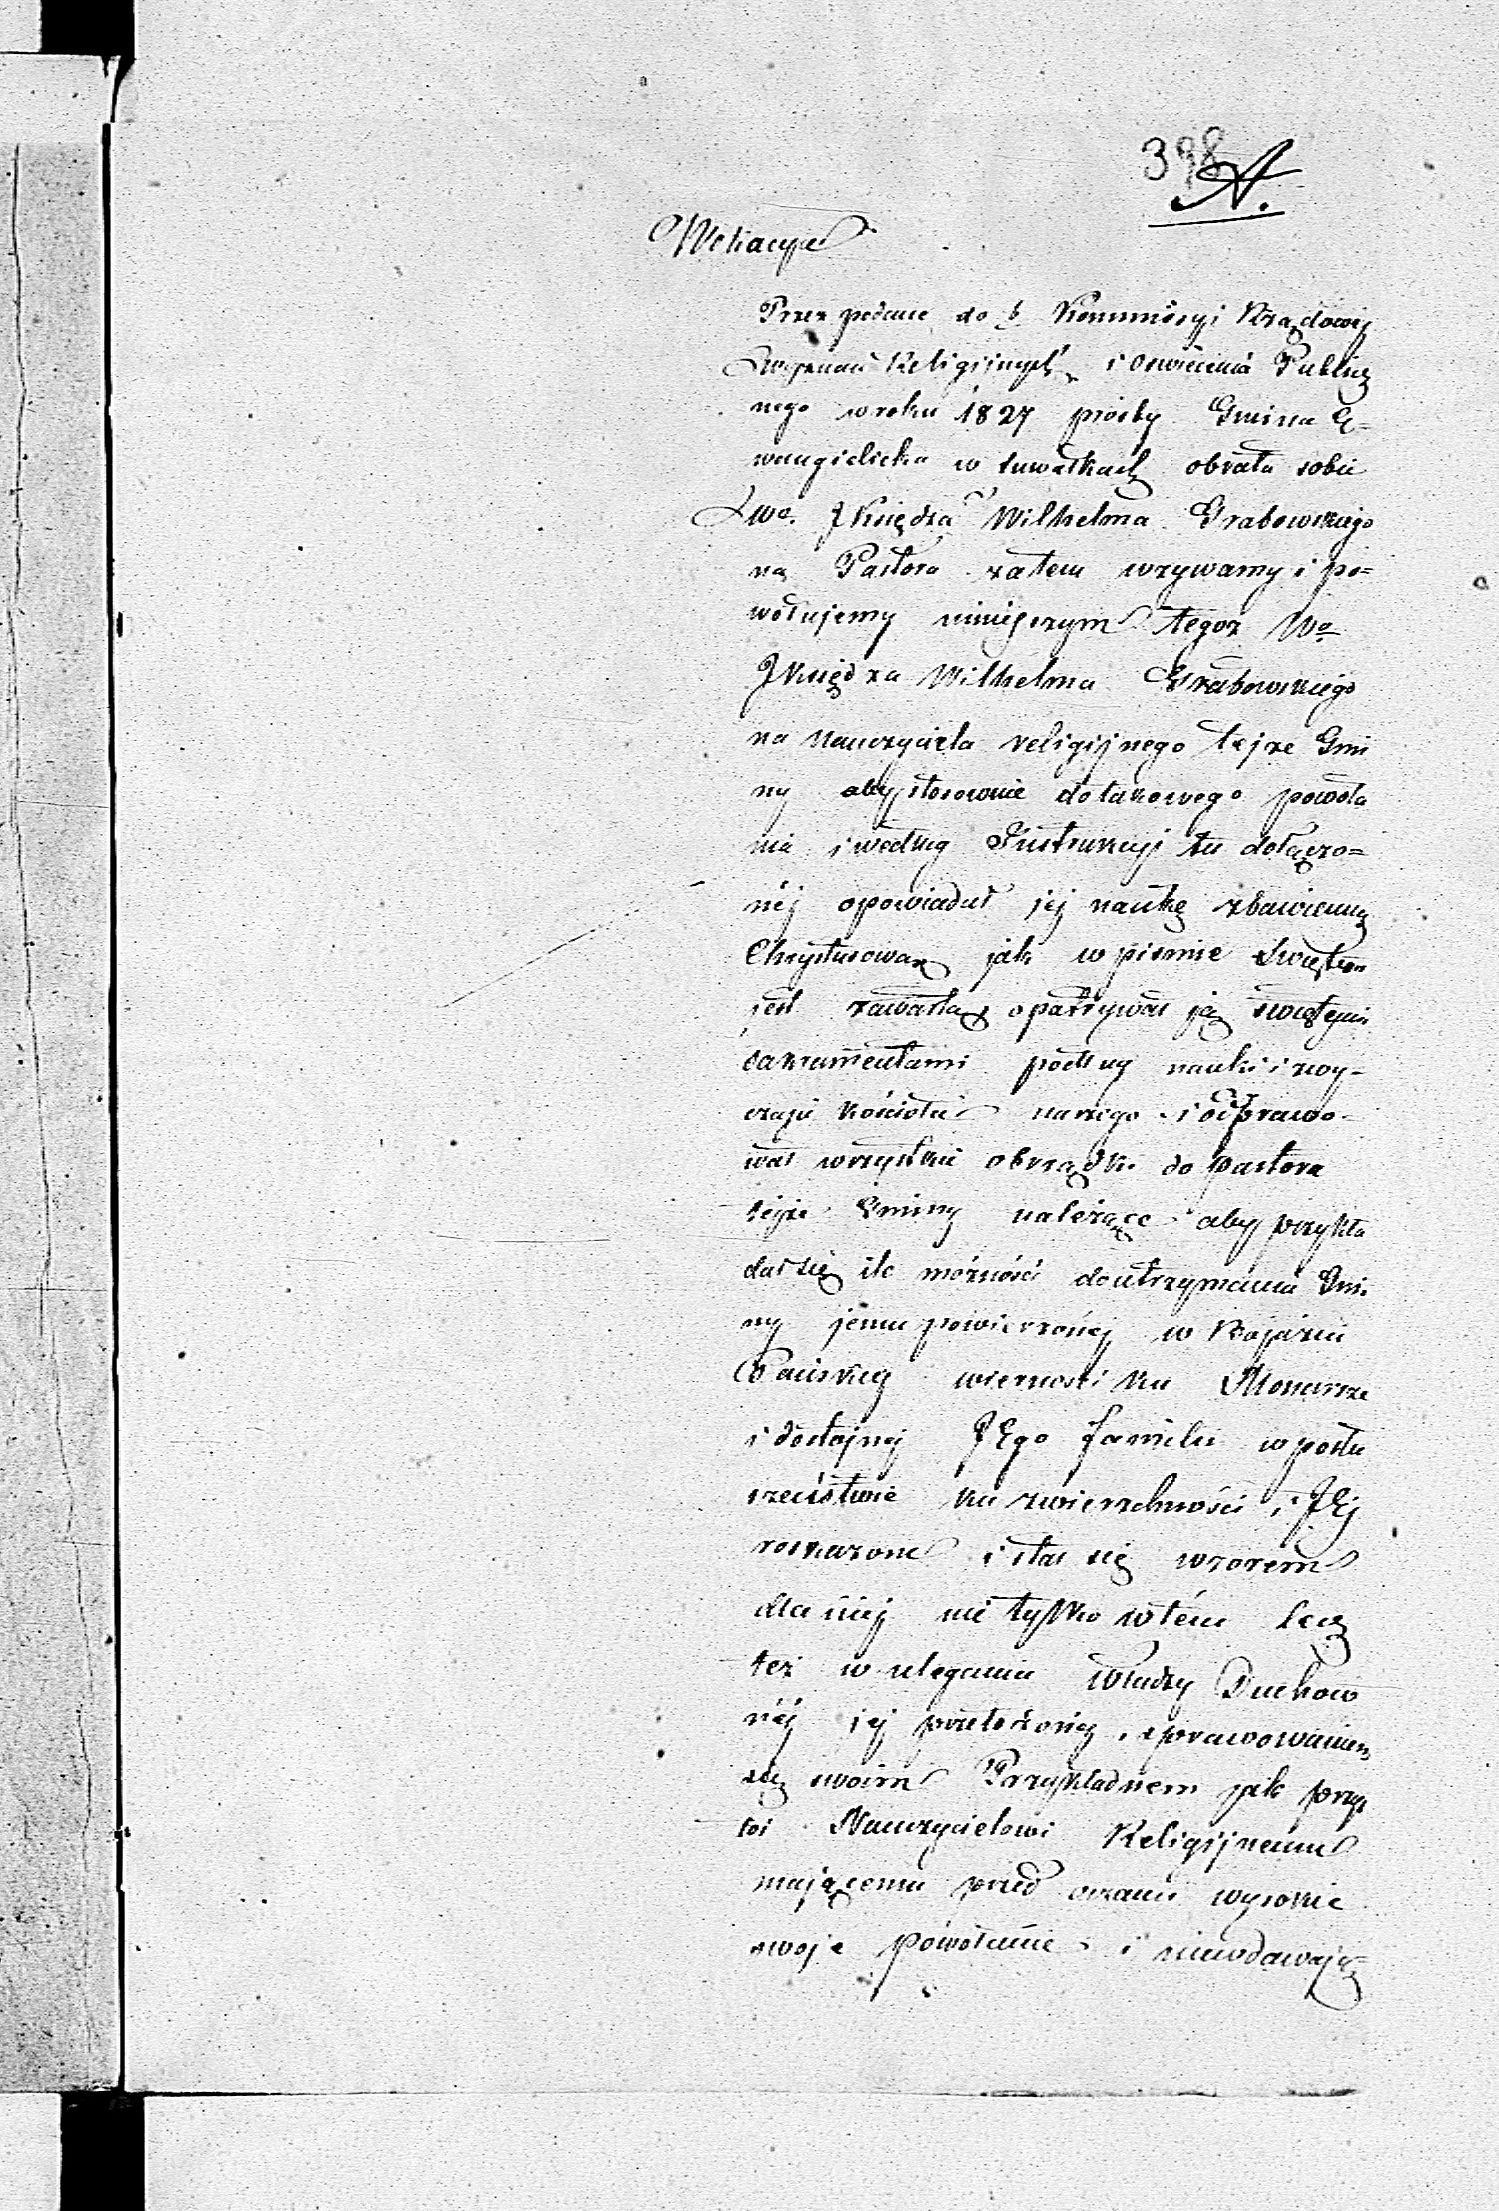 398
A.
Wokacya
Przez podane do b. Kommissyi Rządowéj
Wyznań Religijnych i Oswiecenia Publicz
nego w roku 1827 prośby Gmina E-
wangielicka w Suwałkach obrała sobie
Wo. JKsiędza Wilhelma Grabowskiego
na Pastora zatem wzywamy i po=
wołujemy niniejszym tegoż Wo
JKsiędza Wilhelma Grabowskiego
na Nauczyciela religijnego tejże Gmi
ny aby stosownie do takowego powoła
nia i według Instrukcyi tu dołączo=
néj opowiadał jej naukę zbawienną
Chrystusową jak w pismie Swiętem
jest zawarta, opatrywał ją swiętymi
Sakramentami podług nauki i zwy-
czaju Kościoła naszego i odprawo-
wał wszystkie obrządki do pastora
tejże Gminy należące aby przykła
dał się ile możności do utrzymania Gmi
ny jemu powierzonéj w Bojaźni
Pańskiey wierności ku Monarsze
i dostojnej JEgo familii w posłu
szeństwie ku zwierzchności i JEj
roskazom i stał się wzorem
dla niéj nie tylko w tém lecz
też w uleganiu Władzy Duchow
néj jéj przełożonéj, sprawowaniem
się swoim Przykładnem jak przy
stoi Nauczycielowi Religijnemu
mającemu przed oczami wysokie
swoje powołanie i niewdawając